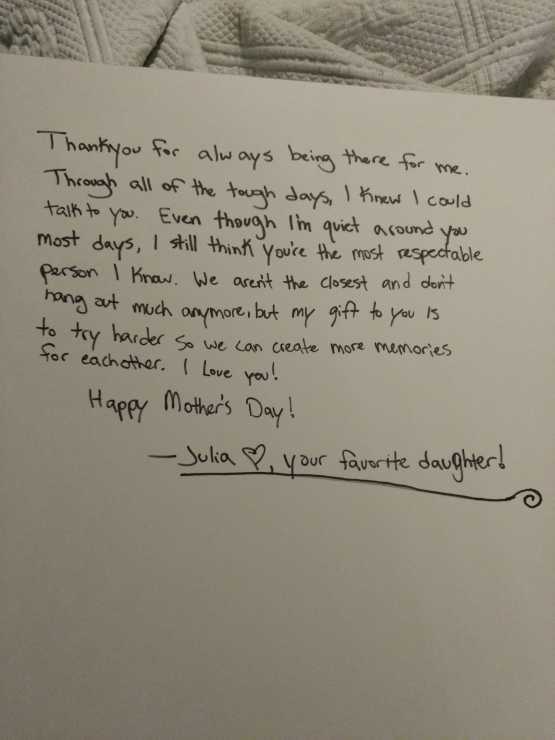 Thankyou for always being there for me.
Through all of the tough days, I knew I could
talk to you. Even though I'm quiet around you
most days, I still think you're the most respectable
person I know. We aren't the closest and don't
hang out much anymore, but my gift to you is
to try harder so we can create more memories
for eachother. I Love you!
Happy Mother's Day!
—Julia ♡, your favorite daughter!